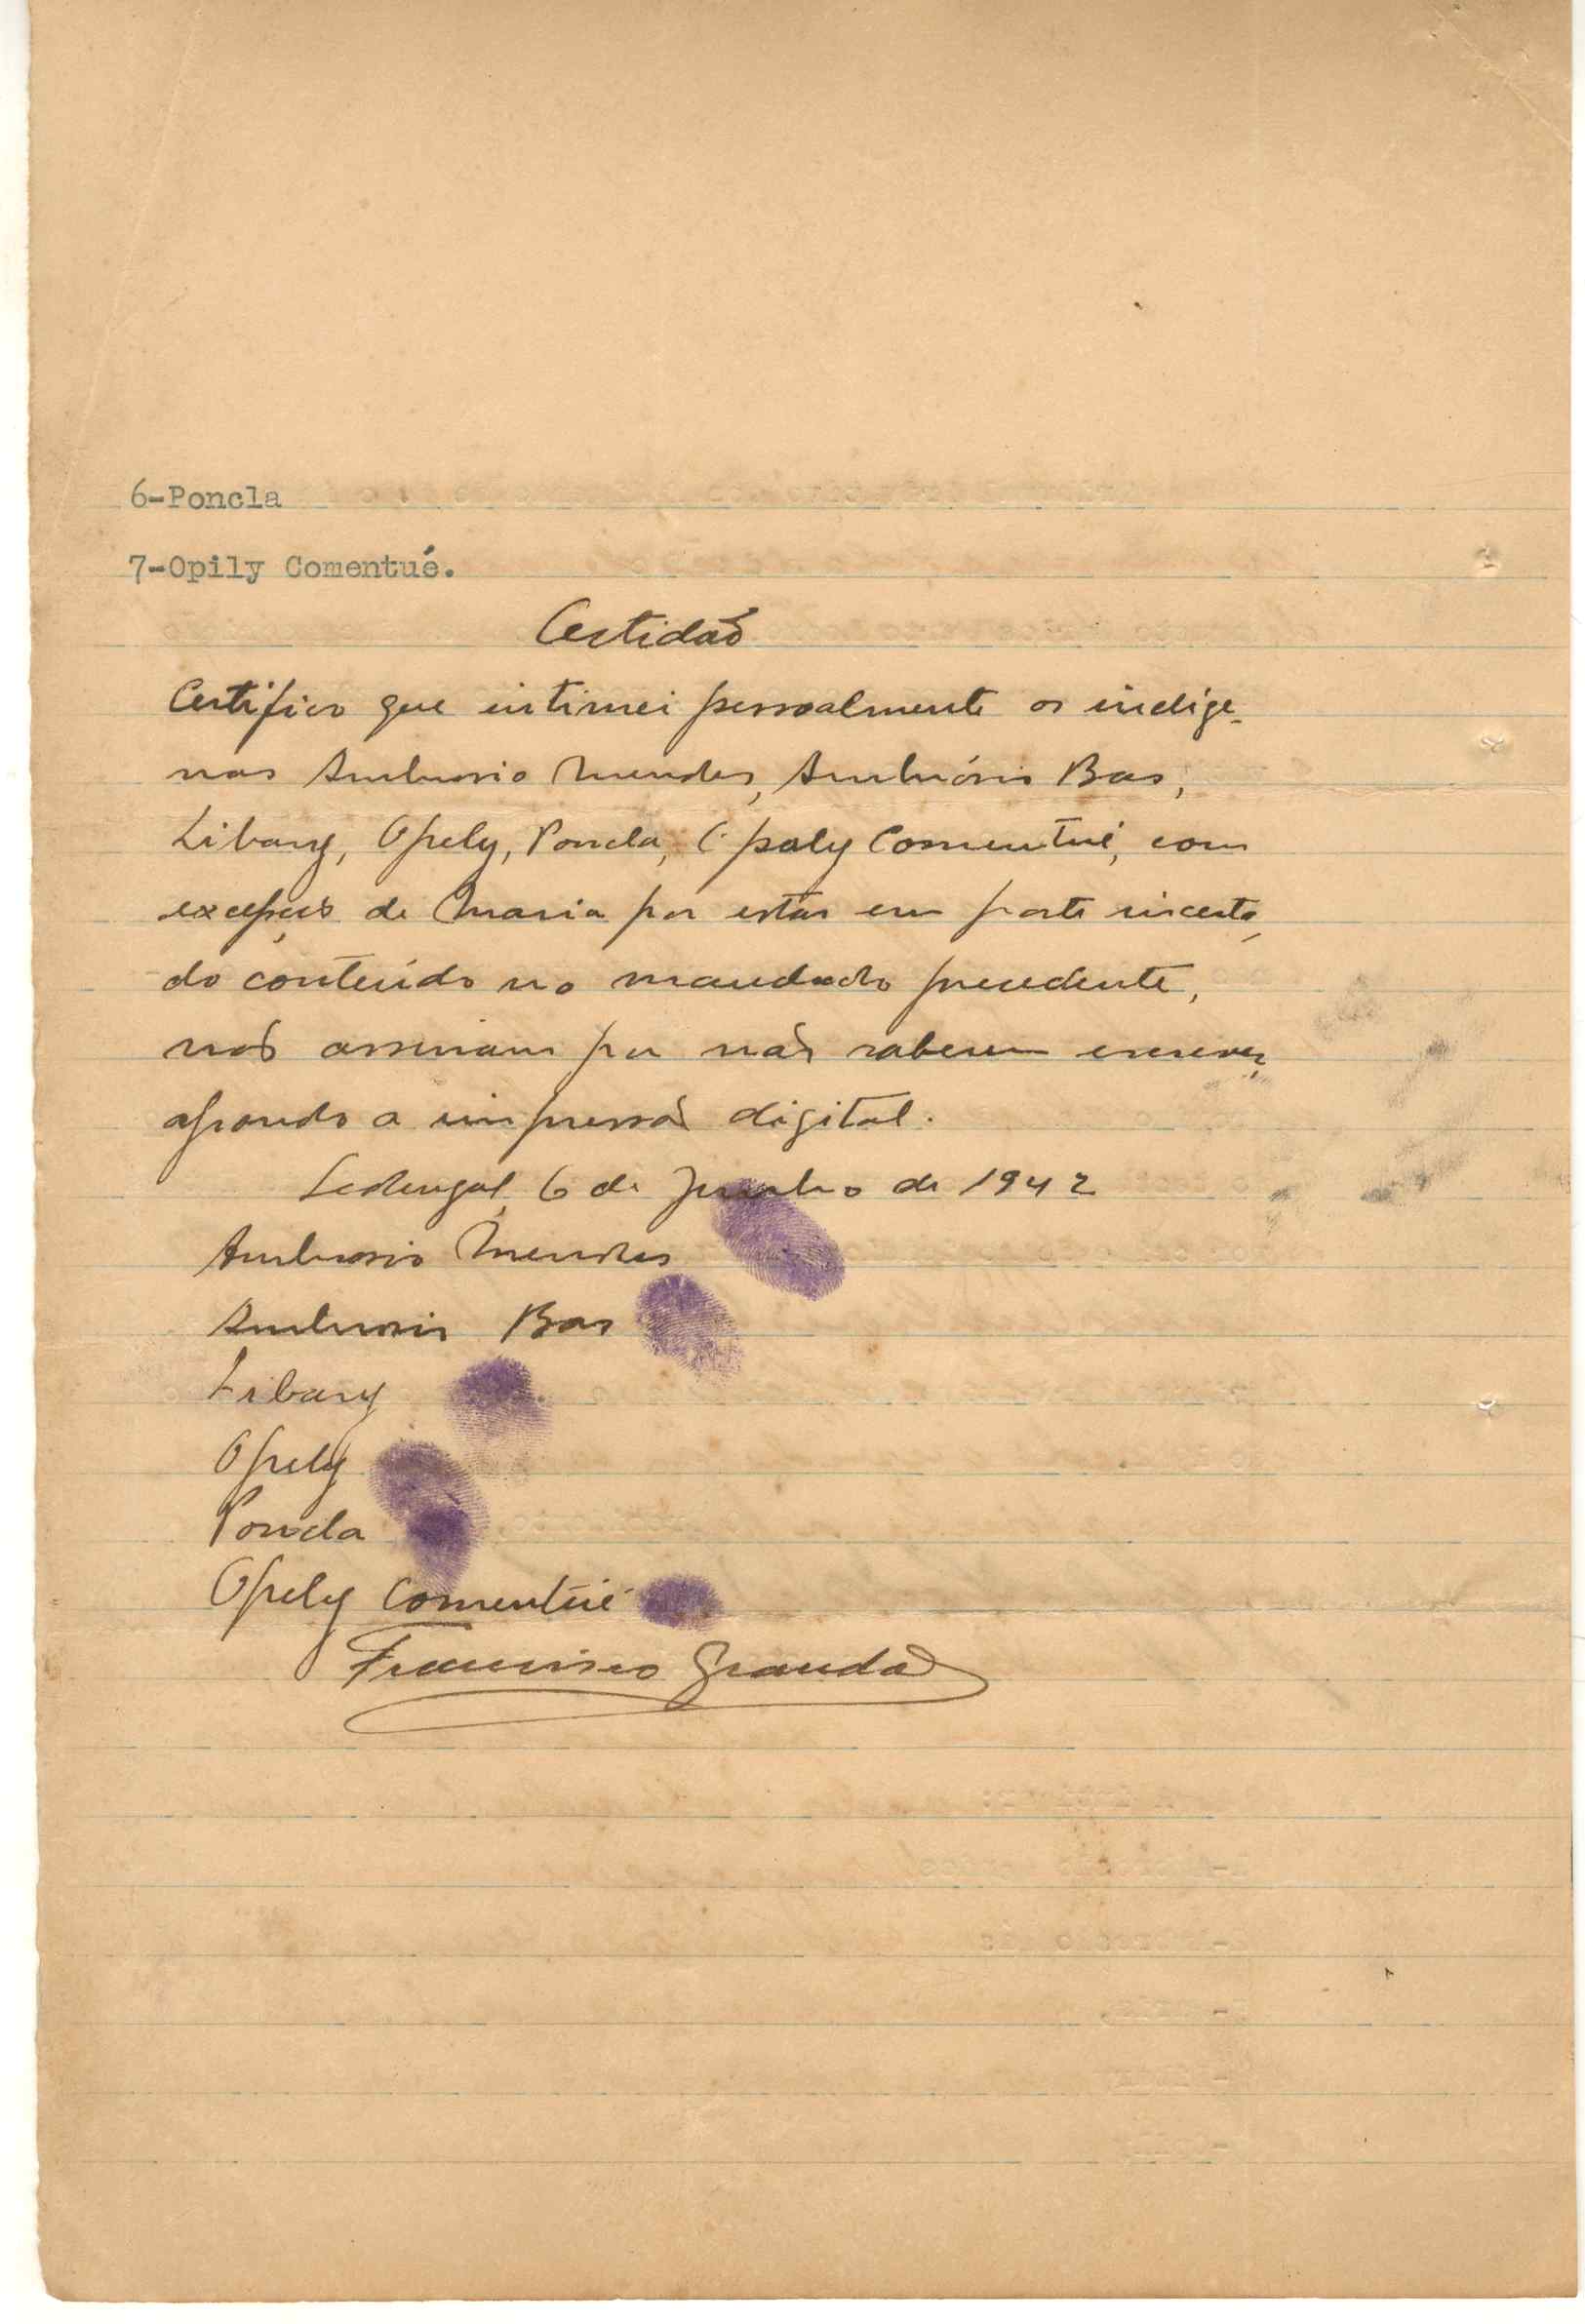 6-Poncla
7-Opily Comentué.
Certidão
Certifico que intimei pessoalmente os indige-
nas Ambrosio Mendes, Ambrósio Bas,
Libany, Opely, Poncla, Opaly Comentué, com
excepção de Maria por estar em parte incerta,
do conteúdo no mandado precedente,
não assinam por não saberem escrever,
apondo a impressão digital.
6 de Junho de 1942
Ambrosio Mendes
Ambrosio Bas
Libany
Opely
Poncla
Opely Comentué
Francisco Grandão